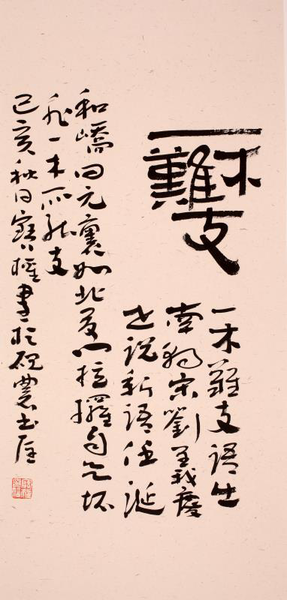 一木難支
一木難支語出
南朝宋劉義慶
世説新語任誕
和嶠曰元裒如北夏门拉攞自欲坏
非一木所能支
己亥秋日寶權書於硯農書屋